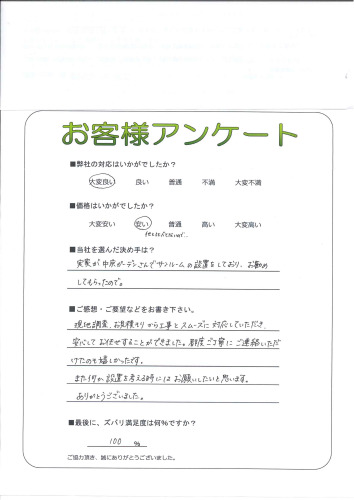 お客様アンケート
■弊社の対応はいかがでしたか？
大変良い 良い 普通 不満 大変不満
■価格はいかがでしたか？
大変安い 安い 普通 高い 大変高い
■当社を選んだ決め手は？
実家が中庭ガーデンさんでサンルームの設置をしており、お勧め
してもらったので。
■ご感想・ご要望などをお書き下さい。
現地調査、お見積もりから工事とスムーズに対応していただき、
安心してお任せすることができました。都度ご丁寧にご連絡いただ
けたのも嬉しかったです。
また何か設置を考える時にはお願いしたいと思います。
ありがとうございました。
■最後に、ズバリ満足度は何％ですか？
100 ％
ご協力頂き、誠にありがとうございました。